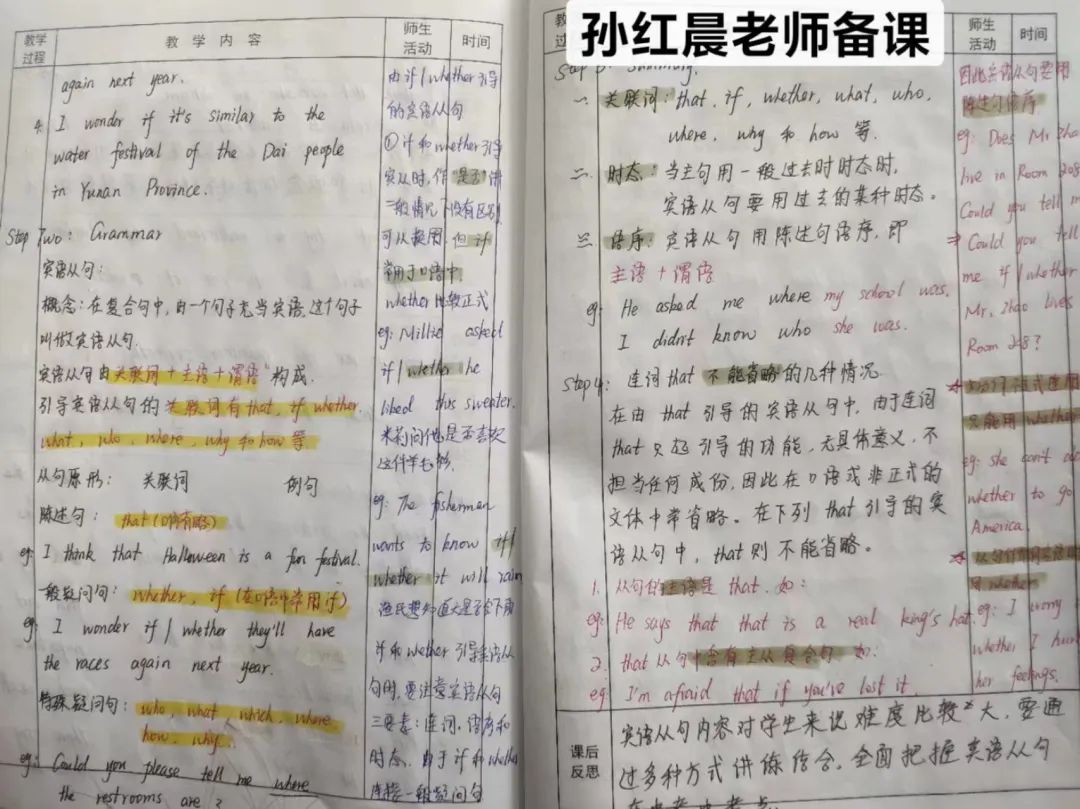 孙红晨老师备课
教学过程
教学内容
师生活动
时间
again next year.
4. I wonder if it's similar to the
water festival of the Dai people
in Yunan Province.
Step Two: Grammar
宾语从句:
概念:在复合句中,由一个句子充当宾语,这个句子
叫做宾语从句.
宾语从句由关联词+主语+谓语"构成.
引导宾语从句的关联词有that, if whether.
what, who, where, why 和 how 等
从句原形: 关联词 例句
陈述句: that (可省略)
eg: I think that Halloween is a fun festival.
一般疑问句: whether, if (在口语中常用 if)
eg: I wonder if / whether they'll have
the races again next year.
特殊疑问句: who, what, which, where
how, why.
eg: Could you please tell me where
the restrooms are?
由 if / whether 引导
的宾语从句
① if 和 whether 引导
宾从时,作"是否"讲
一般情况下没有区别
可以换用.但 if
常用于口语中,
whether 比较正式
eg: Millie asked
if / whether he
liked this sweater.
米莉问他是否喜欢
这件毛衫.
eg: The fisherman
wants to know if /
whether it will rain
渔民想知道天是否会下雨
if 和 whether 引导宾语从
句时,要注意宾语从句
三要素:连词、语序和
时态、由于 if 和 whether
连接一般疑问句
师生活动
时间
Summary.
一、关联词: that, if, whether, what, who,
where, why 和 how 等.
二、时态: 当主句用一般过去时时态时,
宾语从句要用过去的某种时态。
三、语序: 宾语从句用陈述句语序,即
主语+谓语
eg: He asked me where my school was.
I didn't know who she was.
Step 4: 连词 that 不能省略的几种情况
在由 that 引导的宾语从句中,由于连词
that 只起引导的功能,无具体意义,不
担当任何成份,因此在口语或非正式的
文体中常省略。在下列 that 引导的宾
语从句中, that 则不能省略。
1. 从句的主语是 that. 如:
eg: He says that that is a real king's hat.
2. that 从句中含有主从复合句. 如:
eg: I'm afraid that if you've lost it.
因此宾语从句要用
陈述句语序
eg: Does Mr Zhao
live in Room 208
Could you tell me
⇒ Could you tell
me if / whether
Mr. Zhao lives
Room 208?
只能用 whether
eg: she can't
whether to go
America.
用 whether
eg: I worry
whether I
her feelings.
课后反思
宾语从句内容对学生来说难度比较大,要通
过多种方式讲练结合,全面把握宾语从句